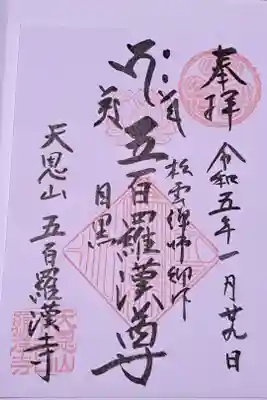 奉拝
令和五年一月廿九日
松雲禅師御作
五百羅漢尊
目黒
天恩山 五百羅漢寺